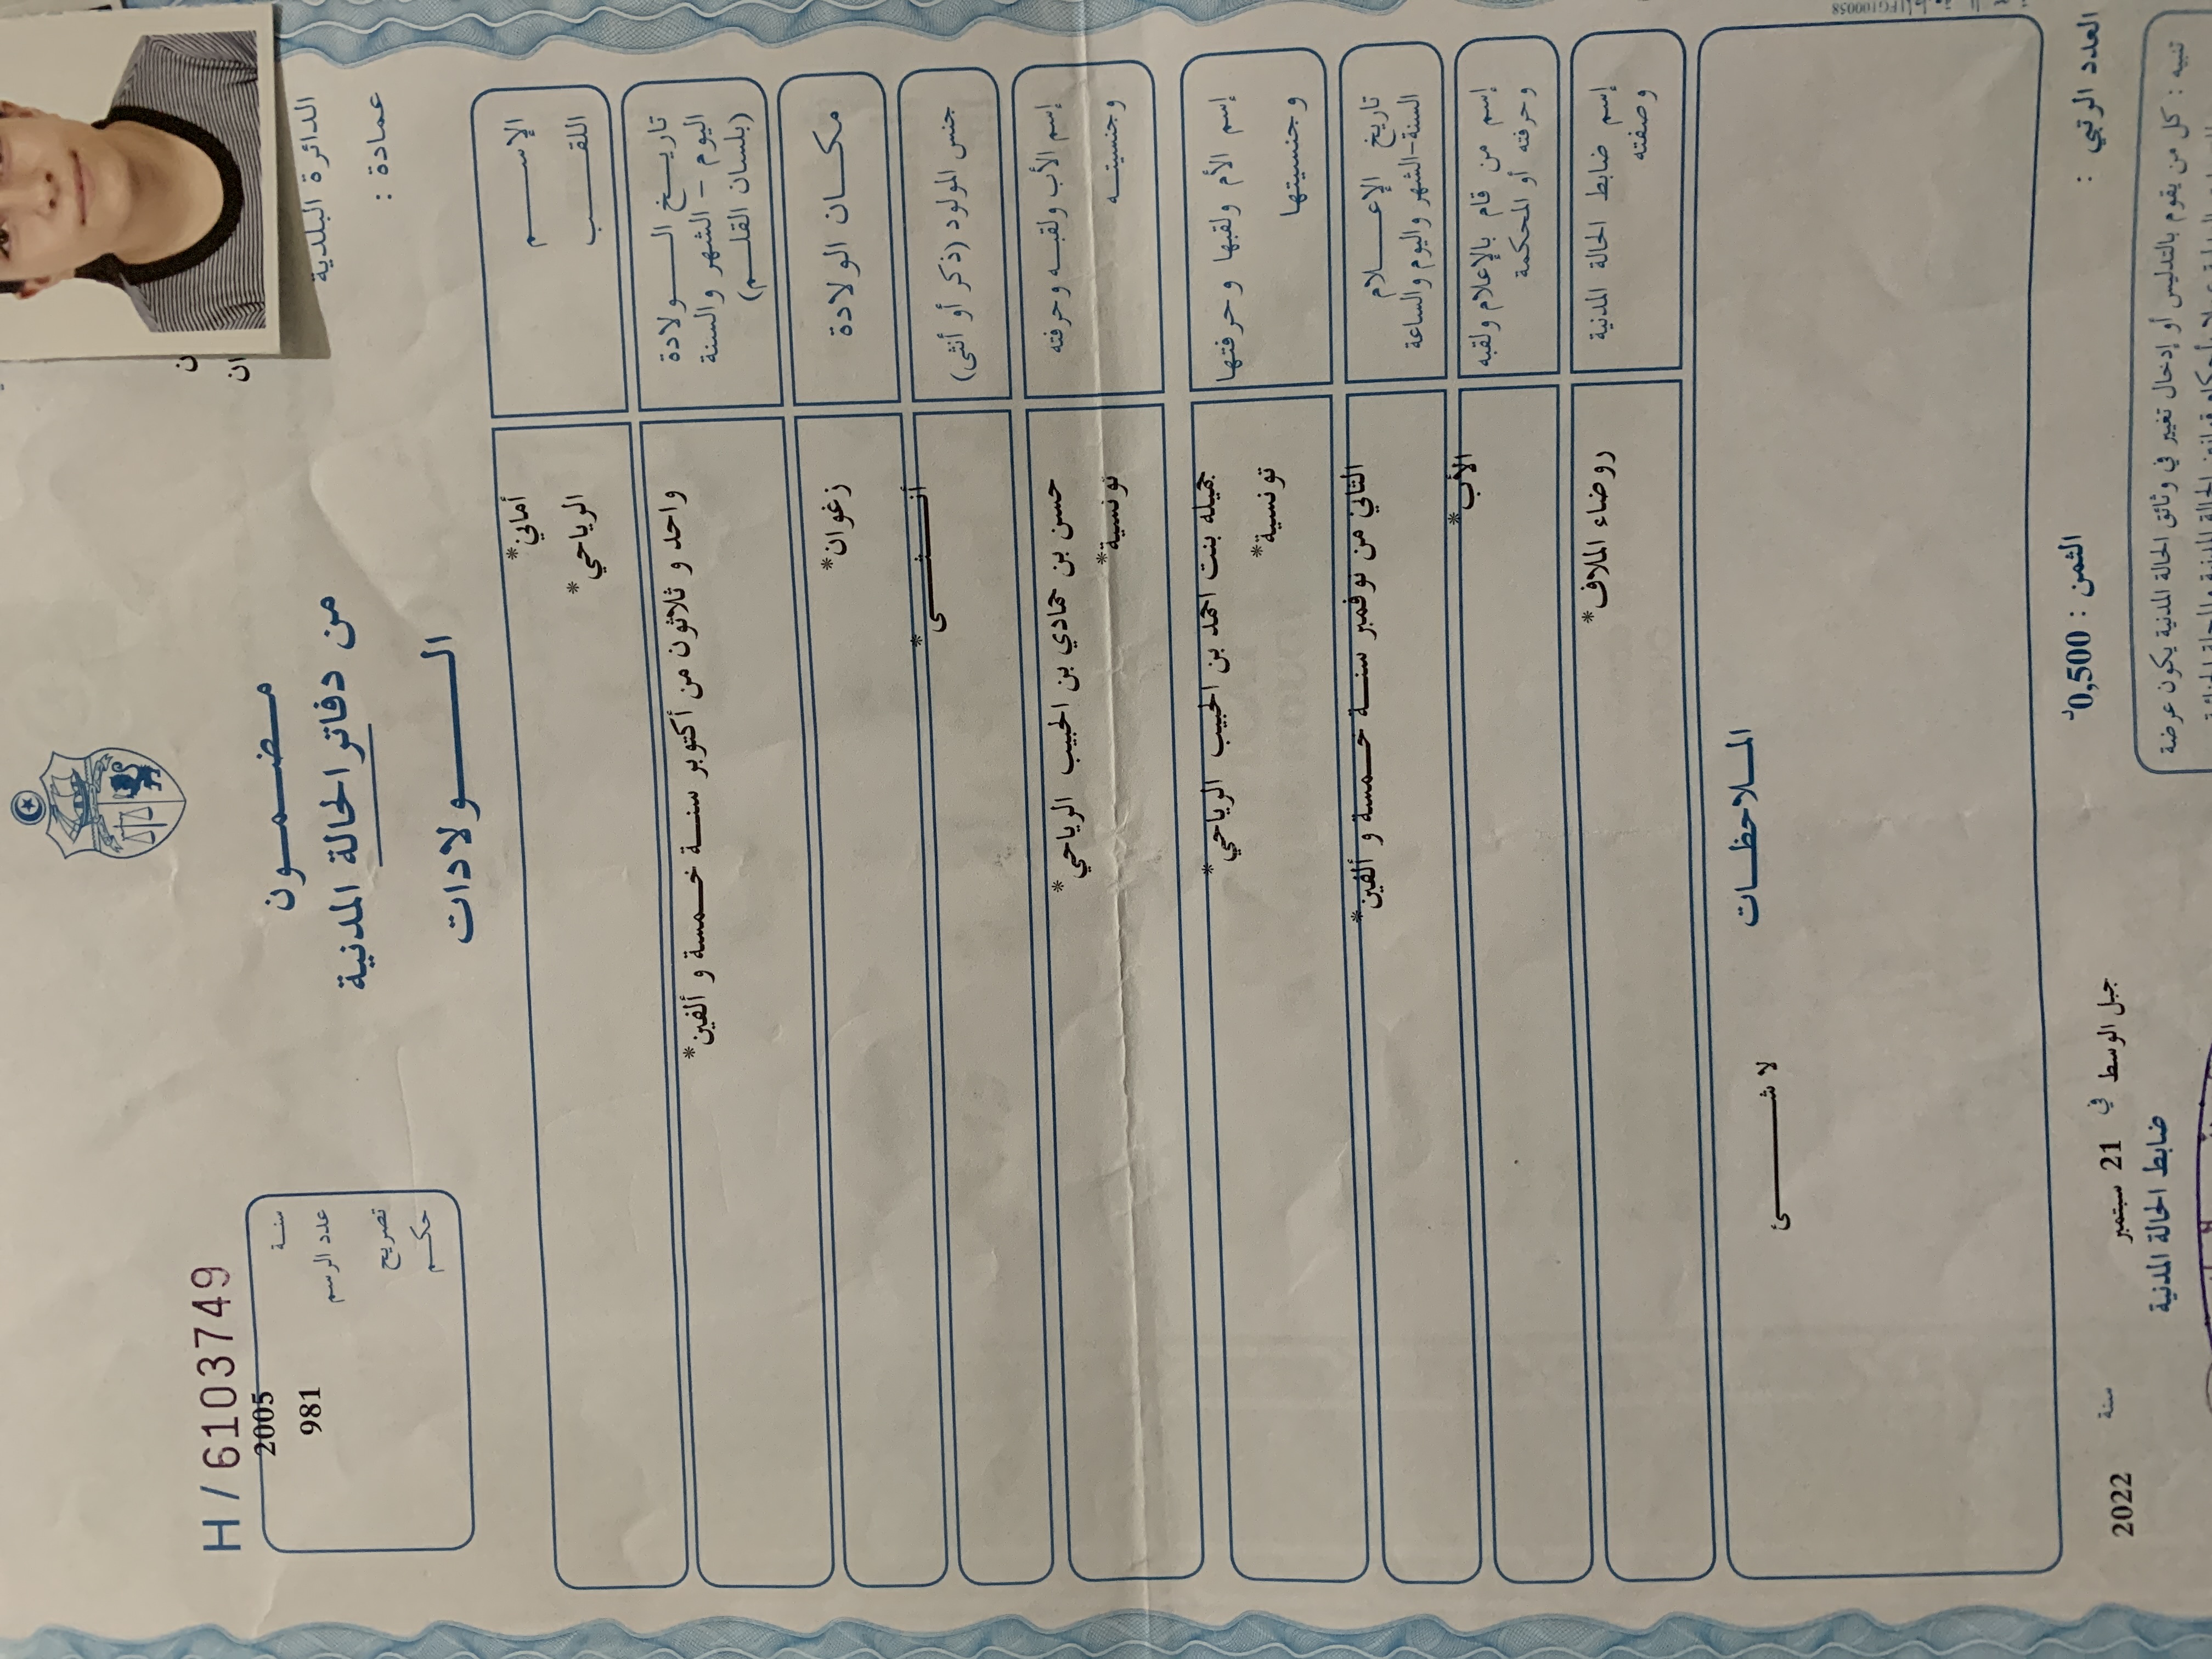 H / 6103749
مضمون
من دفاتر الحالة المدنية
الولادات
الدائرة البلدية
عمادة :
سنة 2005
عدد الرسم 981
تصريح
حكم
الإسم أماني*
اللقب الرياحي*
تاريخ الولادة
اليوم - الشهر والسنة
(بلسان القلم)
واحد و ثلاثون من أكتوبر سنة خمسة و ألفين*
مكان الولادة زغوان*
جنس المولود (ذكر أو أنثى) أنثى*
إسم الأب ولقبه وحرفته حسن بن حمادي بن الحبيب الرياحي*
وجنسيته تونسية*
إسم الأم ولقبها وحرفتها جميله بنت احمد بن الحبيب الرياحي*
وجنسيتها تونسية*
تاريخ الإعلام
السنة-الشهر واليوم والساعة
الثاني من نوفمبر سنة خمسة و ألفين*
إسم من قام بالإعلام ولقبه
وحرفته أو المحكمة
الأب*
إسم ضابط الحالة المدنية
وصفته
روضاء الملاف*
الملاحظات
لا شئ
العدد الرتبي :
الثمن : 0,500د
جبل الوسط في 21 سبتمبر سنة 2022
ضابط الحالة المدنية
تنبيه : كل من يقوم بالتدليس أو إدخال تغيير في وثائق الحالة المدنية يكون عرضة